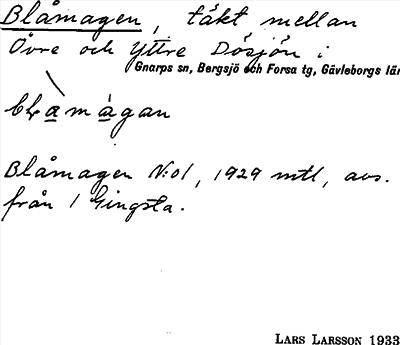 Blåmagen, täkt mellan
Övre och Yttre Dösjön i
Gnarps sn, Bergsjö och Forsa tg, Gävleborgs län
blamàgan
Blåmagen N:o1, 1929 mtl, avs.
från 1 Gingsta.
LARS LARSSON 1933